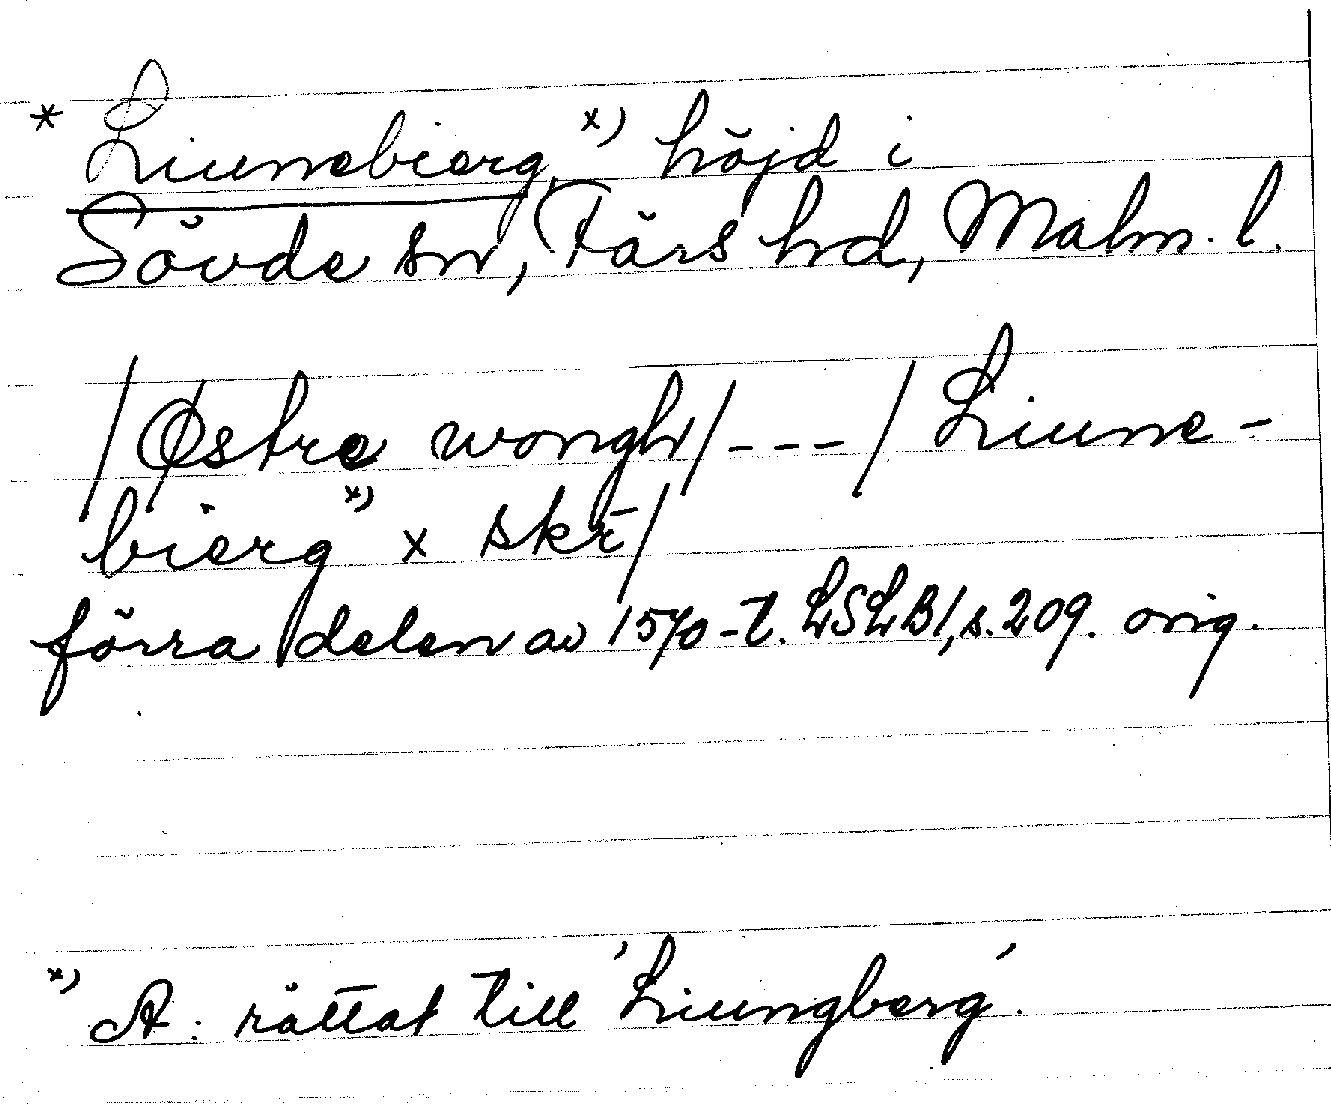 * Liunebierg, x) höjd i
Sövde sn, Färs hd, Malm. l.
/Østre wongh/ --- / Liune-
bierg x) x skr/
förra delen av 1570-t. LSLB1, s. 209. orig.
x) A: rättat till 'Liungberg'.